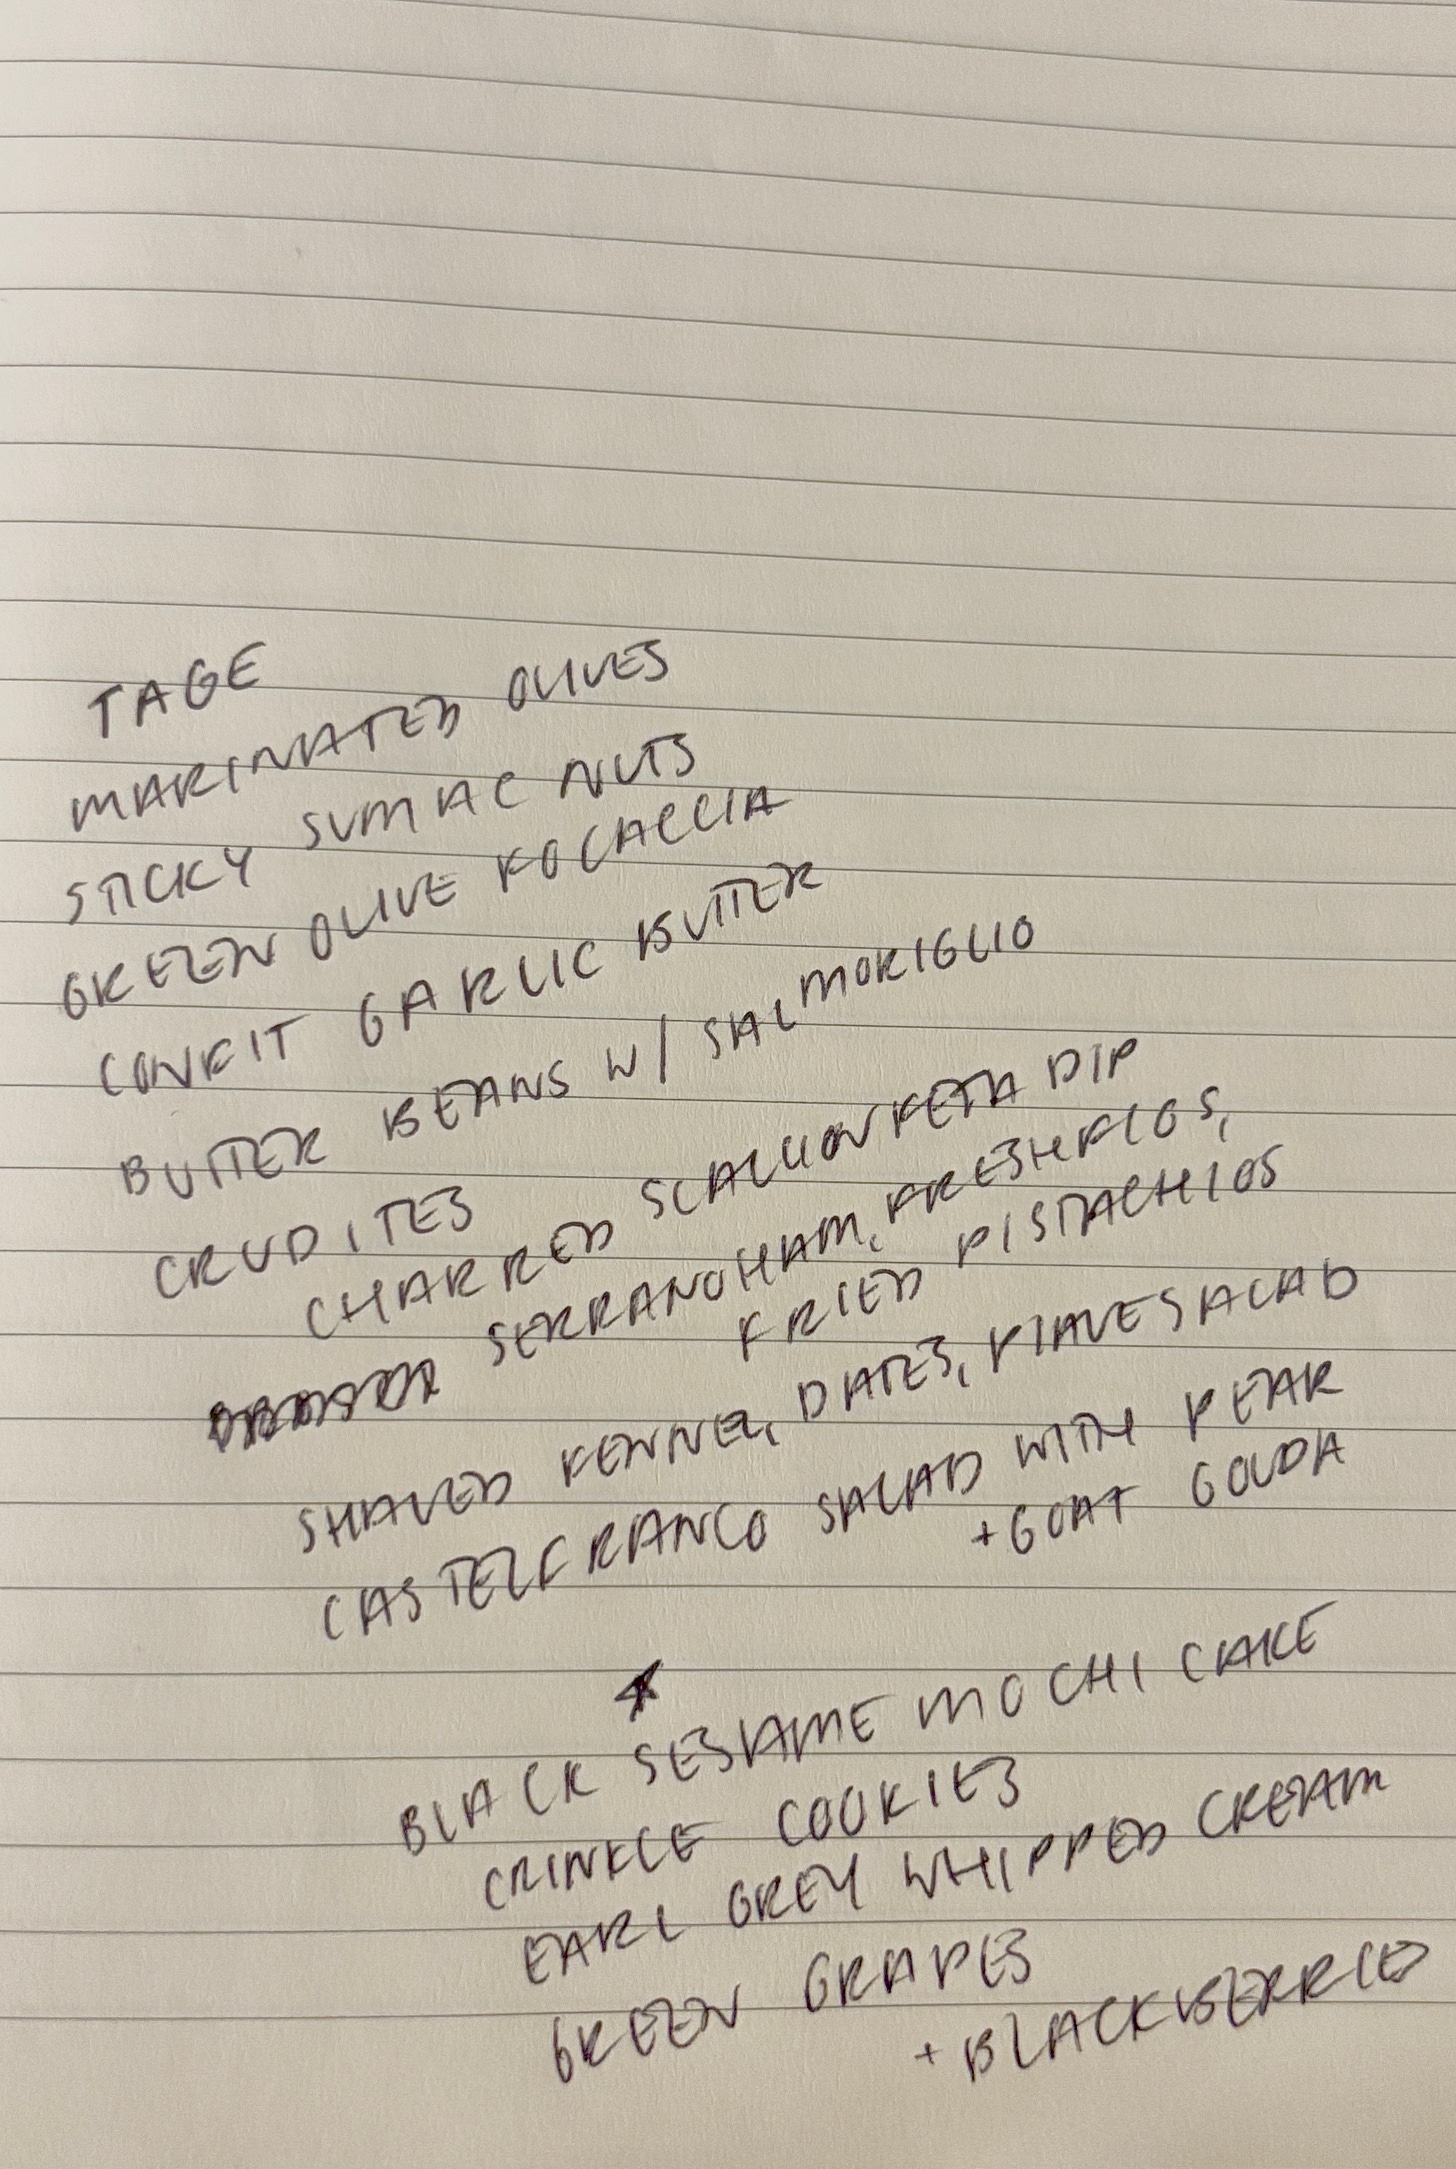 TAGE
MARINATED OLIVES
STICKY SUMAC NUTS
GREEN OLIVE FOCACCIA
CONFIT GARLIC BUTTER
BUTTER BEANS W/ SALMORIGLIO
CRUDITES
CHARRED SCALLION FETA DIP
SERRANO HAM, FRESH FIGS,
FRIED PISTACHIOS
SHAVED FENNEL, DATES, PIAVE SALAD
CASTELFRANCO SALAD WITH PEAR
+ GOAT GOUDA
BLACK SESAME MOCHI CAKE
CRINKLE COOKIES
EARL GREY WHIPPED CREAM
GREEN GRAPES
+ BLACKBERRIES